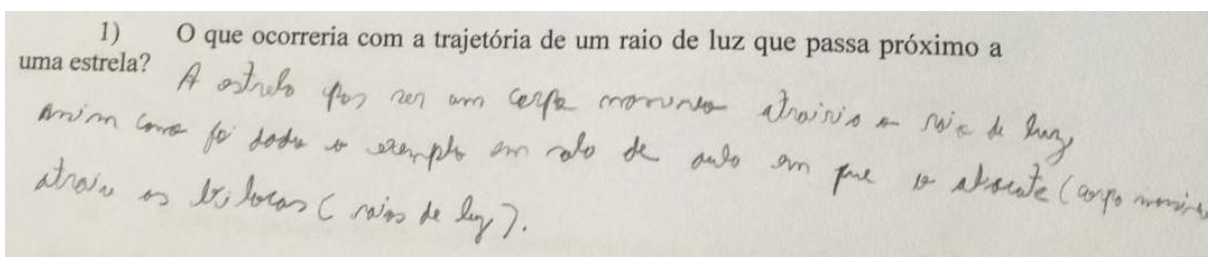 1) O que ocorreria com a trajetória de um raio de luz que passa próximo a
uma estrela?
A estrela por ser um corpo massivo atrairia o raio de luz,
assim como foi dado o exemplo em sala de aula em que o abacate (corpo massivo
atraiu as bilocas (raios de luz).